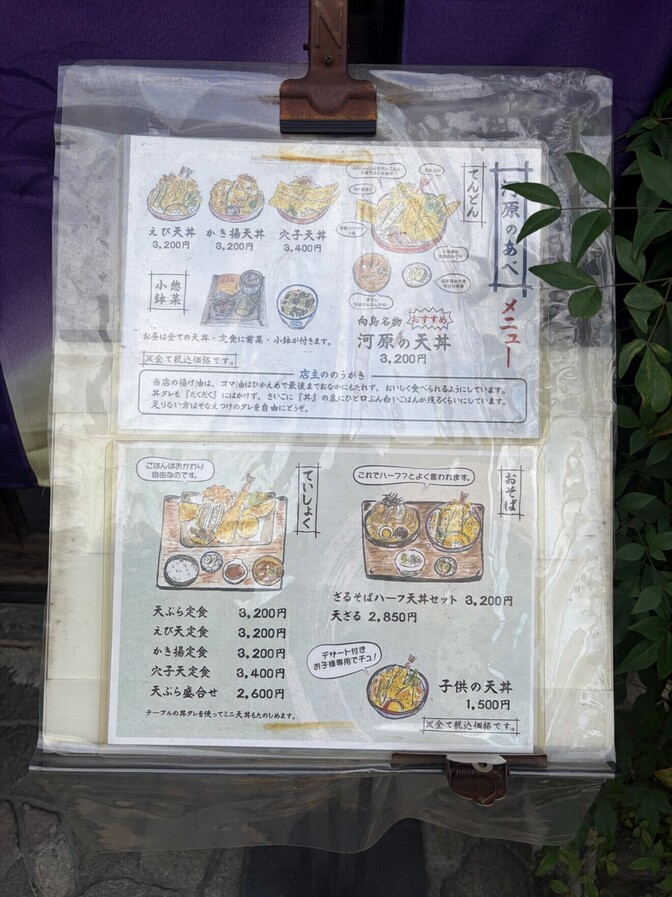 河原のあべ
メニュー
てんどん
えび天丼
3,200円
かき揚天丼
3,200円
穴子天丼
3,400円
惣菜
小鉢
お昼は全ての天丼・定食に前菜・小鉢が付きます。
※全て税込価格です。
向島名物
おすすめ
河原の天丼
3,200円
店主ののうがき
当店の揚げ油は、ゴマ油はひかえめで最後までおなかにもたれず、おいしく食べられるようにしています。
丼タレも『だくだく』にはかけず、さいごに『丼』の底にひと口ぶん白いごはんが残るくらいにしています。
足りない方はそなえつけのタレを自由にどうぞ。
ごはんはおかわり
自由なのです。
ていしょく
天ぷら定食 3,200円
えび天定食 3,200円
かき揚定食 3,200円
穴子天定食 3,400円
天ぷら盛合せ 2,600円
テーブルの丼タレを使ってミニ天丼もたのしめます。
おそば
これでハーフ?とよく言われます。
ざるそばハーフ天丼セット 3,200円
天ざる 2,850円
デザート付き
お子様専用でチュ!
子供の天丼
1,500円
※全て税込価格です。